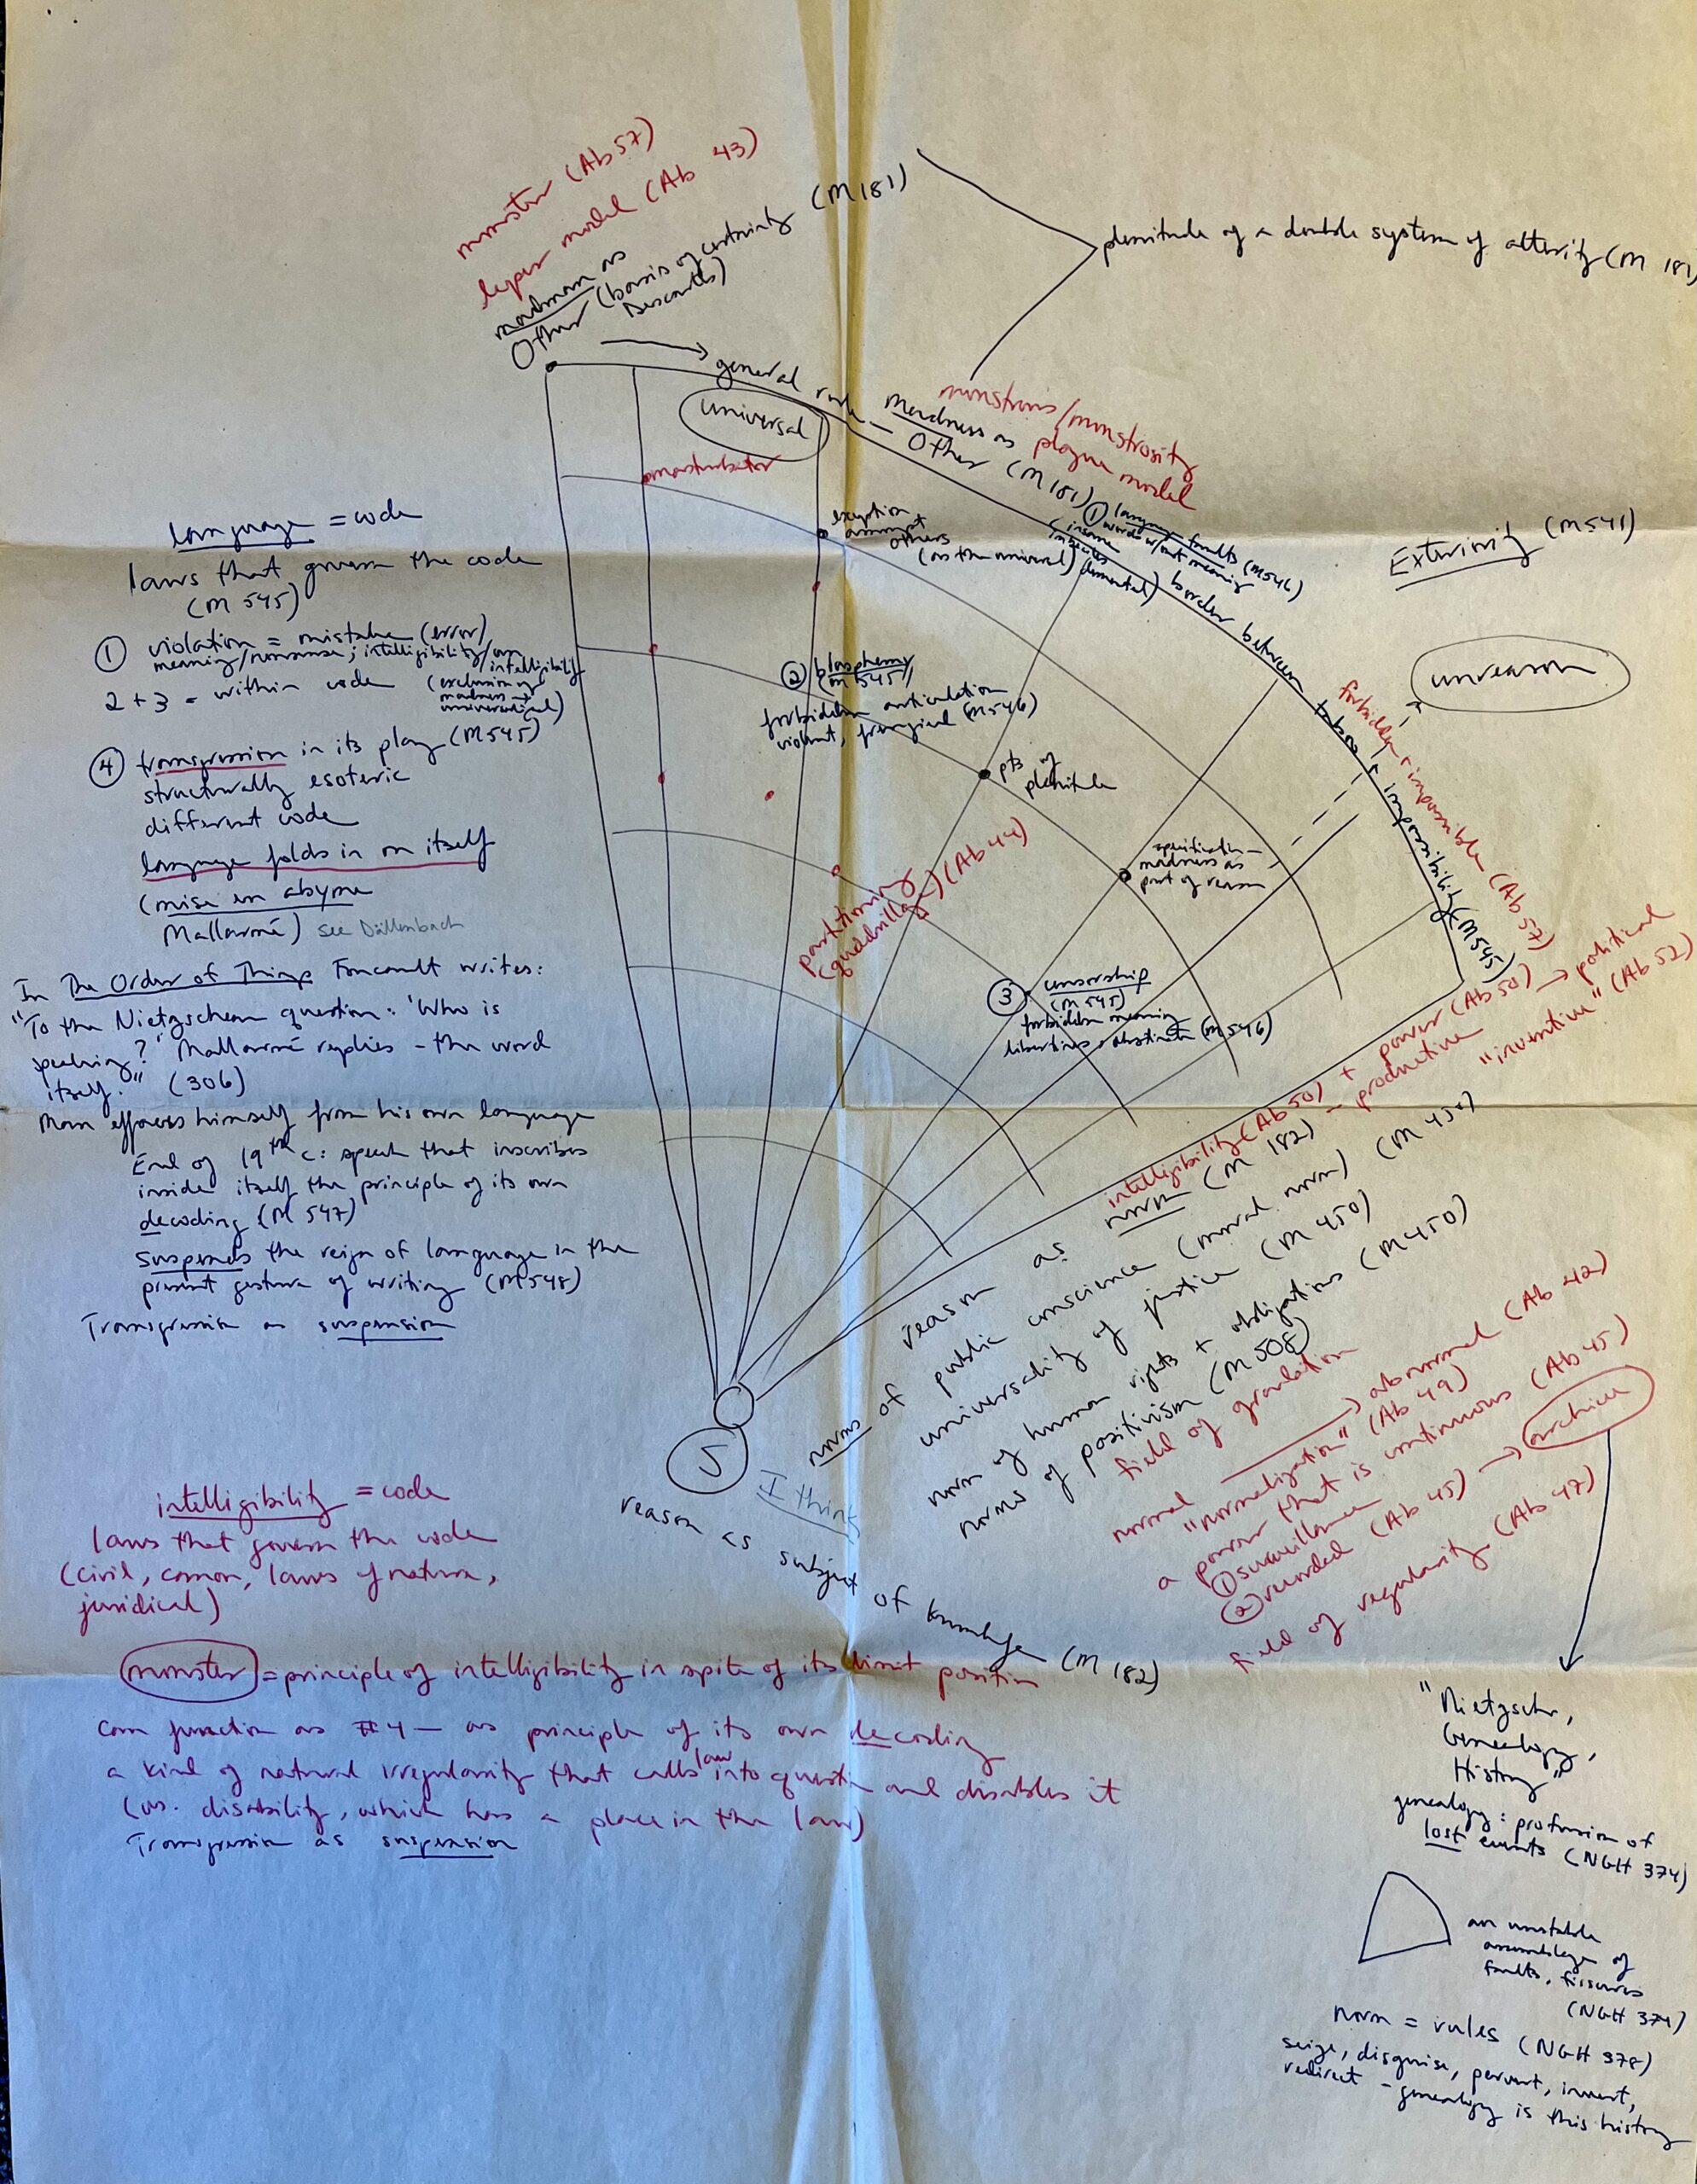 monster (Ab 57)
leper model (Ab 43)
madman as
Other (basis of certainty (M 181)
Descartes)
plenitude of a double system of alterity (M 181)
general rule —
universal
monstrous/monstrosity
madness as plague model
Other (M 181)
masturbator
exception
amongst
others
(as the universal)
① language faults (M 546)
words w/out meaning
(insane
imbeciles
demented)
border between taboo + impossibility (M 545)
forbidden + impossible (Ab 57)
Exteriority (M 541)
unreason
② blasphemy
(M 545)
forbidden articulation
violent, frenzied (M 546)
pts of
plenitude
specification —
madness as
part of reason
partitioning
(quadrillage) (Ab 44)
③ censorship
(M 545)
forbidden meaning
libertines, obstinate (M 546)
language = code
laws that govern the code
(M 545)
① violation = mistake (error)
meaning/nonsense; intelligibility/un
intelligibility
2 + 3 = within code (exclusion of
madness →
universalized)
④ transgression in its play (M 545)
structurally esoteric
different code
language folds in on itself
(mise en abyme
Mallarmé) see Dällenbach
In The Order of Things Foucault writes:
"To the Nietzschean question: 'Who is
speaking?' Mallarmé replies - the word
itself." (306)
Man effaces himself from his own language
End of 19th c: speech that inscribes
inside itself the principle of its own
decoding (M 547)
suspends the reign of language in the
present gesture of writing (M 548)
Transgression as suspension
intelligibility (Ab 50) + power (Ab 50) → political
reason as norm (M 182) — productive "inventive" (Ab 52)
norms of public conscience (moral norm) (M 450)
universality of justice (M 450)
norm of human rights + obligations (M 450)
norms of positivism (M 508)
field of gradation
normal → abnormal (Ab 42)
"normalization" (Ab 49)
a power that is continuous (Ab 45)
① surveillance
② recorded (Ab 45) → archive
field of regularity (Ab 47)
S
I think
reason as subject of knowledge (M 182)
intelligibility = code
laws that govern the code
(civil, canon, laws of nature,
juridical)
monster = principle of intelligibility in spite of its limit position
can function as #4 — as principle of its own decoding
a kind of natural irregularity that calls law into question and disables it
(vs. disability, which has a place in the law)
Transgression as suspension
"Nietzsche,
Genealogy,
History"
genealogy: profusion of
lost events (NGH 374)
an unstable
assemblage of
faults, fissures
(NGH 374)
norm = rules (NGH 378)
seize, disguise, pervert, invert,
redirect - genealogy is this history